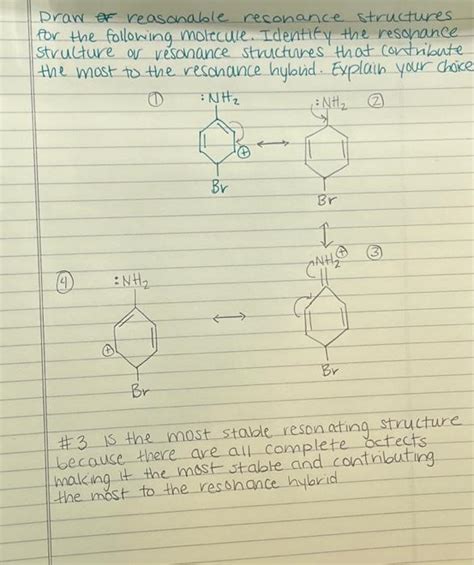 Draw or reasonable resonance structures
for the following molecule. Identify the resonance
strulture or resonance structures that contribute
the most to the resonance hybrid. Explain your choice
① :NH2 :NH2 ②
⊕
Br
Br
④ :NH2 NH2 ⊕ ③
⊕
Br
Br
#3 is the most stable resonating structure
because there are all complete octects
making it the most stable and contributing
the most to the resonance hybrid